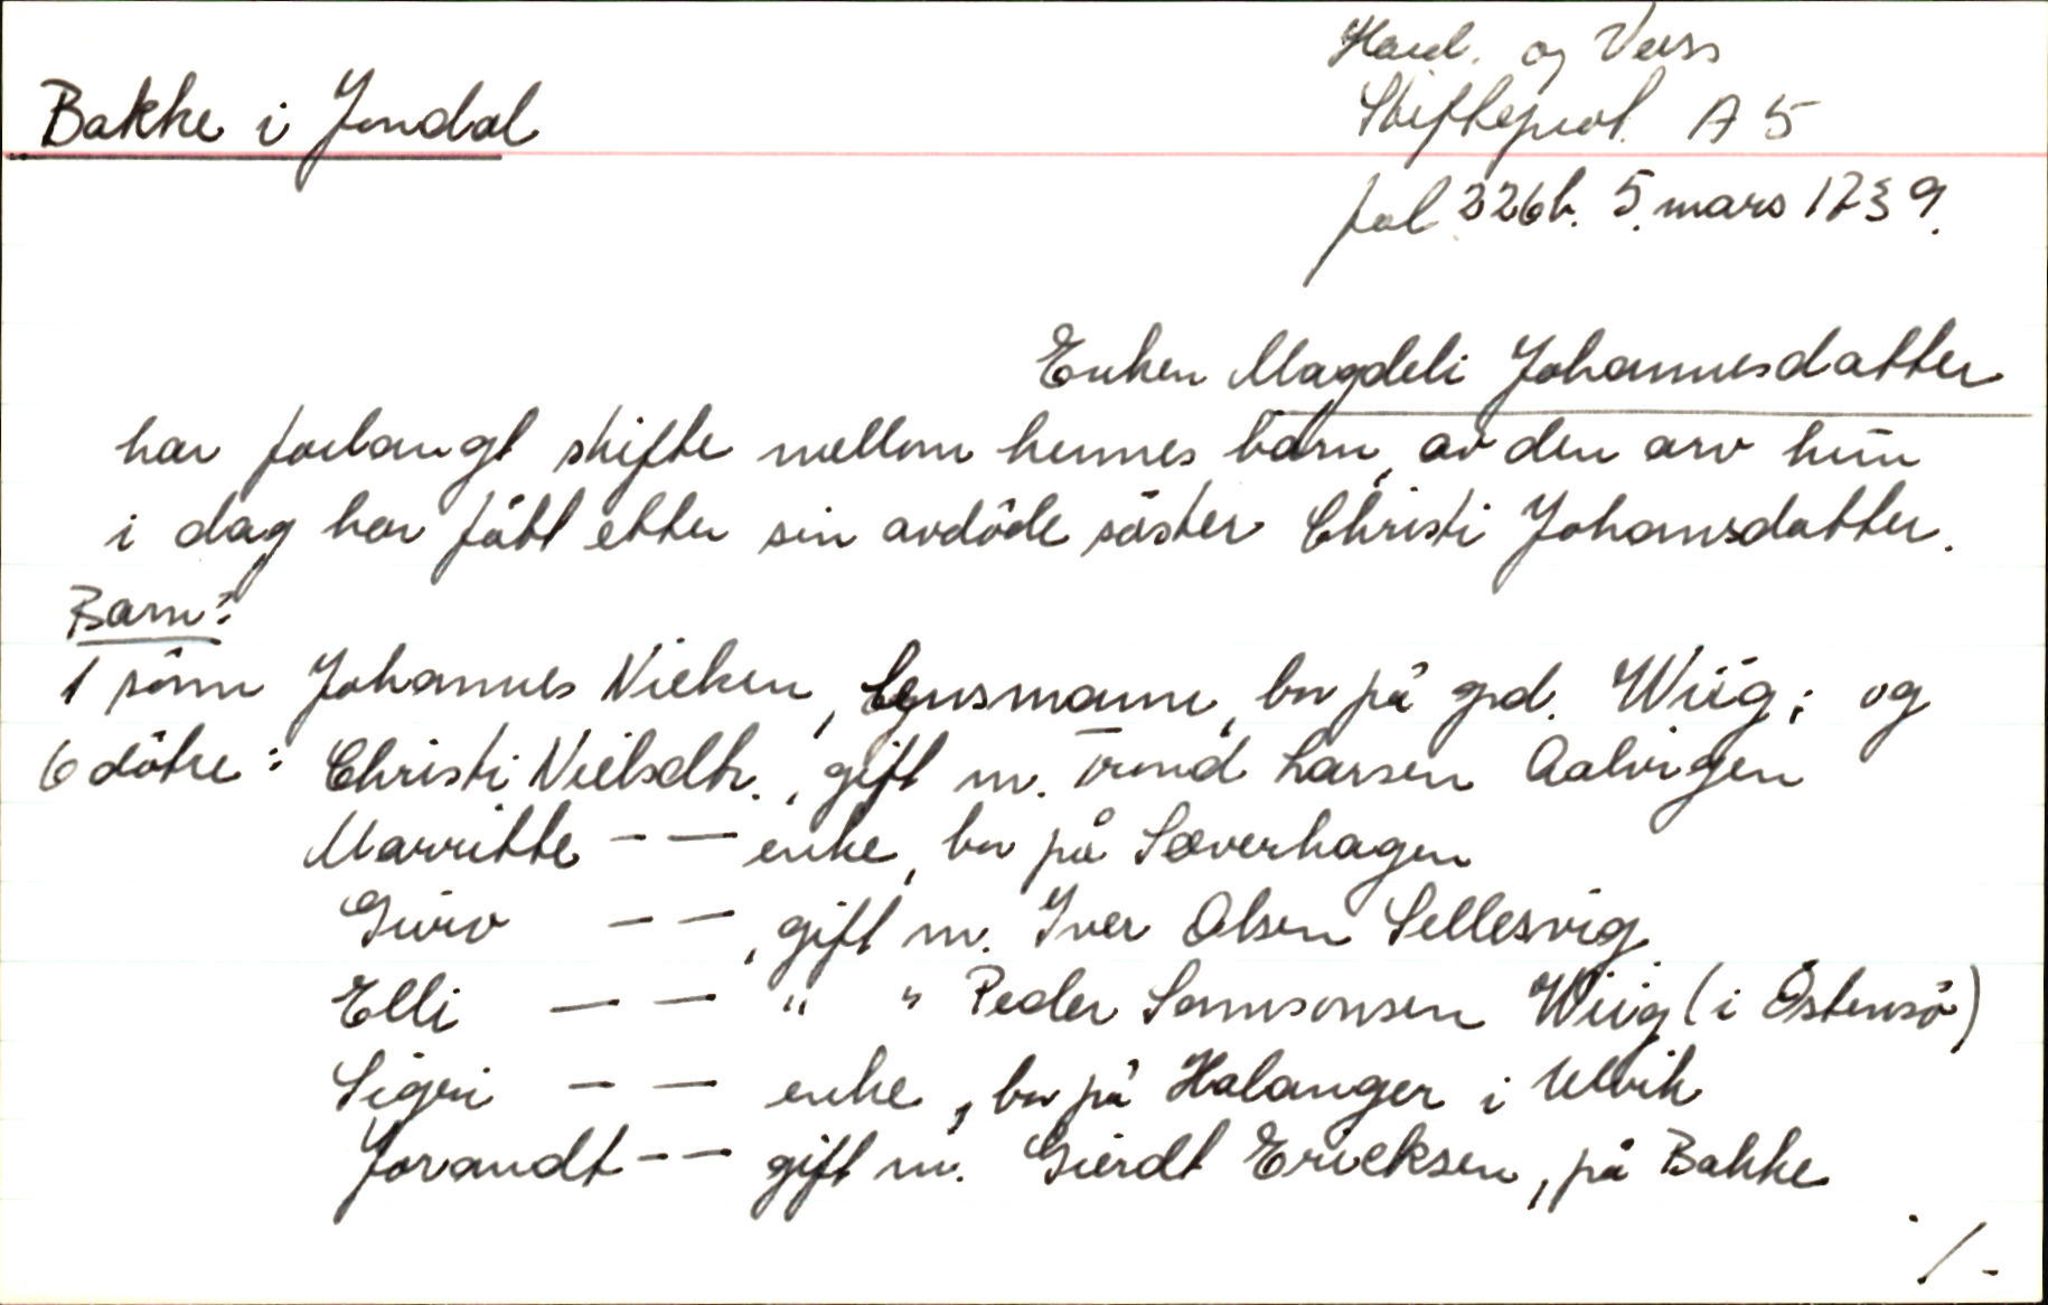 Hard. og Voss
Bakke i Jondal
Skifteprot. A 5
fol 326b. 5. mars 1739.
Enken Magdeli Johannesdatter
har forlangt skifte mellom hennes barn, av den arv hun
i dag har fått etter sin avdöde söster Christi Johansdatter.
Barn:
1 sönn Johannes Nielsen, lensmann, bor på grd. Wiig; og
6 dötre: Christi Nielsdtr., gift m. Trond Larsen Aalvigen
Marritte — — enke, bor på Sæverhagen
Guro — —, gift m. Iver Olsen Sellesvig
Elli — — " " Peder Samsonsen Wiig (i Östensö)
Sigri — — enke, bor på Halanger i Ulvik
Jorandt — — gift m. Gierdt Ericksen, på Bakke
./-